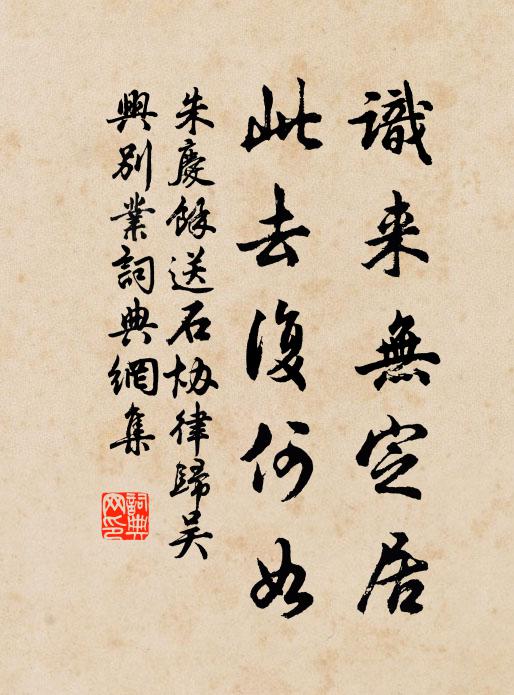 識来無定居
此去復何如
朱慶餘送石协律歸吳
興别業詞典網集
詞典網印